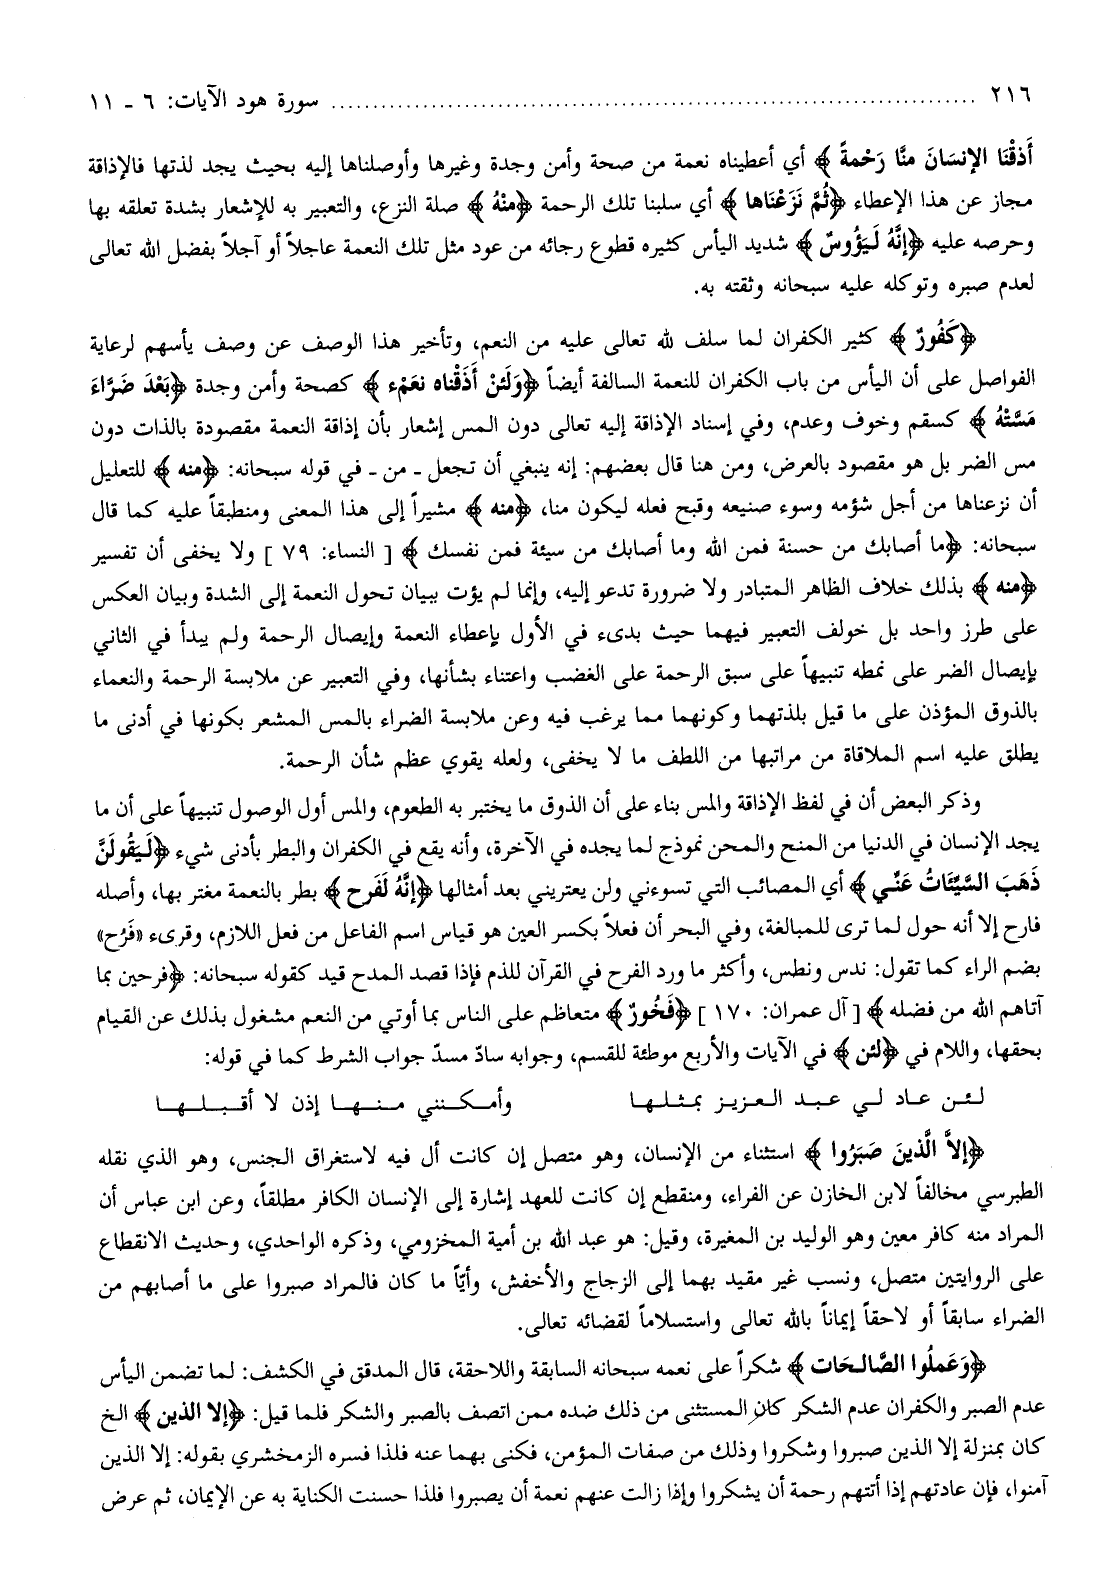 ٢١٦ ........................................................ سورة هود الآيات: ٦ ـ ١١
أَذَقْنَا الإنسَانَ منَّا رَحْمةً ﴾ أي أعطيناه نعمة من صحة وأمن وجدة وغيرها وأوصلناها إليه بحيث يجد لذتها فالإذاقة
مجاز عن هذا الإعطاء ﴿ثُمَّ نَزَعْناها ﴾ أي سلبنا تلك الرحمة ﴿منْهُ ﴾ صلة النزع، والتعبير به للإشعار بشدة تعلقه بها
وحرصه عليه ﴿إنَّهُ لَيَؤُوسٌ ﴾ شديد اليأس كثيره قطوع رجائه من عود مثل تلك النعمة عاجلاً أو آجلاً بفضل الله تعالى
لعدم صبره وتوكله عليه سبحانه وثقته به.
﴿كَفُورٌ ﴾ كثير الكفران لما سلف لله تعالى عليه من النعم، وتأخير هذا الوصف عن وصف يأسهم لرعاية
الفواصل على أن اليأس من باب الكفران للنعمة السالفة أيضاً ﴿وَلَئنْ أَذَقْناه نعَمْء ﴾ كصحة وأمن وجدة ﴿بَعْدَ ضَرَّاءَ
مَسَّتْهُ ﴾ كسقم وخوف وعدم، وفي إسناد الإذاقة إليه تعالى دون المس إشعار بأن إذاقة النعمة مقصودة بالذات دون
مس الضر بل هو مقصود بالعرض، ومن هنا قال بعضهم: إنه ينبغي أن تجعل ـ من ـ في قوله سبحانه: ﴿منه ﴾ للتعليل
أن نزعناها من أجل شؤمه وسوء صنيعه وقبح فعله ليكون منا، ﴿منه ﴾ مشيراً إلى هذا المعنى ومنطبقاً عليه كما قال
سبحانه: ﴿ما أصابك من حسنة فمن الله وما أصابك من سيئة فمن نفسك ﴾ [ النساء: ٧٩ ] ولا يخفى أن تفسير
﴿منه ﴾ بذلك خلاف الظاهر المتبادر ولا ضرورة تدعو إليه، وإنما لم يؤت ببيان تحول النعمة إلى الشدة وبيان العكس
على طرز واحد بل خولف التعبير فيهما حيث بدىء في الأول بإعطاء النعمة وإيصال الرحمة ولم يبدأ في الثاني
بإيصال الضر على نمطه تنبيهاً على سبق الرحمة على الغضب واعتناء بشأنها، وفي التعبير عن ملابسة الرحمة والنعماء
بالذوق المؤذن على ما قيل بلذتهما وكونهما مما يرغب فيه وعن ملابسة الضراء بالمس المشعر بكونها في أدنى ما
يطلق عليه اسم الملاقاة من مراتبها من اللطف ما لا يخفى، ولعله يقوي عظم شأن الرحمة.
وذكر البعض أن في لفظ الإذاقة والمس بناء على أن الذوق ما يختبر به الطعوم، والمس أول الوصول تنبيهاً على أن ما
يجد الإنسان في الدنيا من المنح والمحن نموذج لما يجده في الآخرة، وأنه يقع في الكفران والبطر بأدنى شيء ﴿لَيَقُولَنَّ
ذَهَبَ السَّيِّئَاتُ عَنِّي ﴾ أي المصائب التي تسوءني ولن يعتريني بعد أمثالها ﴿إنَّهُ لَفَرِح ﴾ بطر بالنعمة مغتر بها، وأصله
فارح إلا أنه حول لما ترى للمبالغة، وفي البحر أن فعلاً بكسر العين هو قياس اسم الفاعل من فعل اللازم، وقرىء «فَرُح»
بضم الراء كما تقول: ندس ونطس، وأكثر ما ورد الفرح في القرآن للذم فإذا قصد المدح قيد كقوله سبحانه: ﴿فرحين بما
آتاهم الله من فضله ﴾ [ آل عمران: ١٧٠ ] ﴿فَخُورٌ ﴾ متعاظم على الناس بما أوتي من النعم مشغول بذلك عن القيام
بحقها، واللام في ﴿لئن ﴾ في الآيات والأربع موطئة للقسم، وجوابه سادّ مسدّ جواب الشرط كما في قوله:
لئن عاد لي عبد العزيز بمثلها وأمكنني منها إذن لا أقبلها
﴿إلاَّ الَّذينَ صَبَرُوا ﴾ استثناء من الإنسان، وهو متصل إن كانت أل فيه لاستغراق الجنس، وهو الذي نقله
الطبرسي مخالفاً لابن الخازن عن الفراء، ومنقطع إن كانت للعهد إشارة إلى الإنسان الكافر مطلقاً، وعن ابن عباس أن
المراد منه كافر معين وهو الوليد بن المغيرة، وقيل: هو عبد الله بن أمية المخزومي، وذكره الواحدي، وحديث الانقطاع
على الروايتين متصل، ونسب غير مقيد بهما إلى الزجاج والأخفش، وأيّاً ما كان فالمراد صبروا على ما أصابهم من
الضراء سابقاً أو لاحقاً إيماناً بالله تعالى واستسلاماً لقضائه تعالى.
﴿وَعَملُوا الصَّالحَات ﴾ شكراً على نعمه سبحانه السابقة واللاحقة، قال المدقق في الكشف: لما تضمن اليأس
عدم الصبر والكفران عدم الشكر كان المستثنى من ذلك ضده ممن اتصف بالصبر والشكر فلما قيل: ﴿إلا الذين ﴾ الخ
كان بمنزلة إلا الذين صبروا وشكروا وذلك من صفات المؤمن، فكنى بهما عنه فلذا فسره الزمخشري بقوله: إلا الذين
آمنوا، فإن عادتهم إذا أتتهم رحمة أن يشكروا وإذا زالت عنهم نعمة أن يصبروا فلذا حسنت الكناية به عن الإيمان، ثم عرض